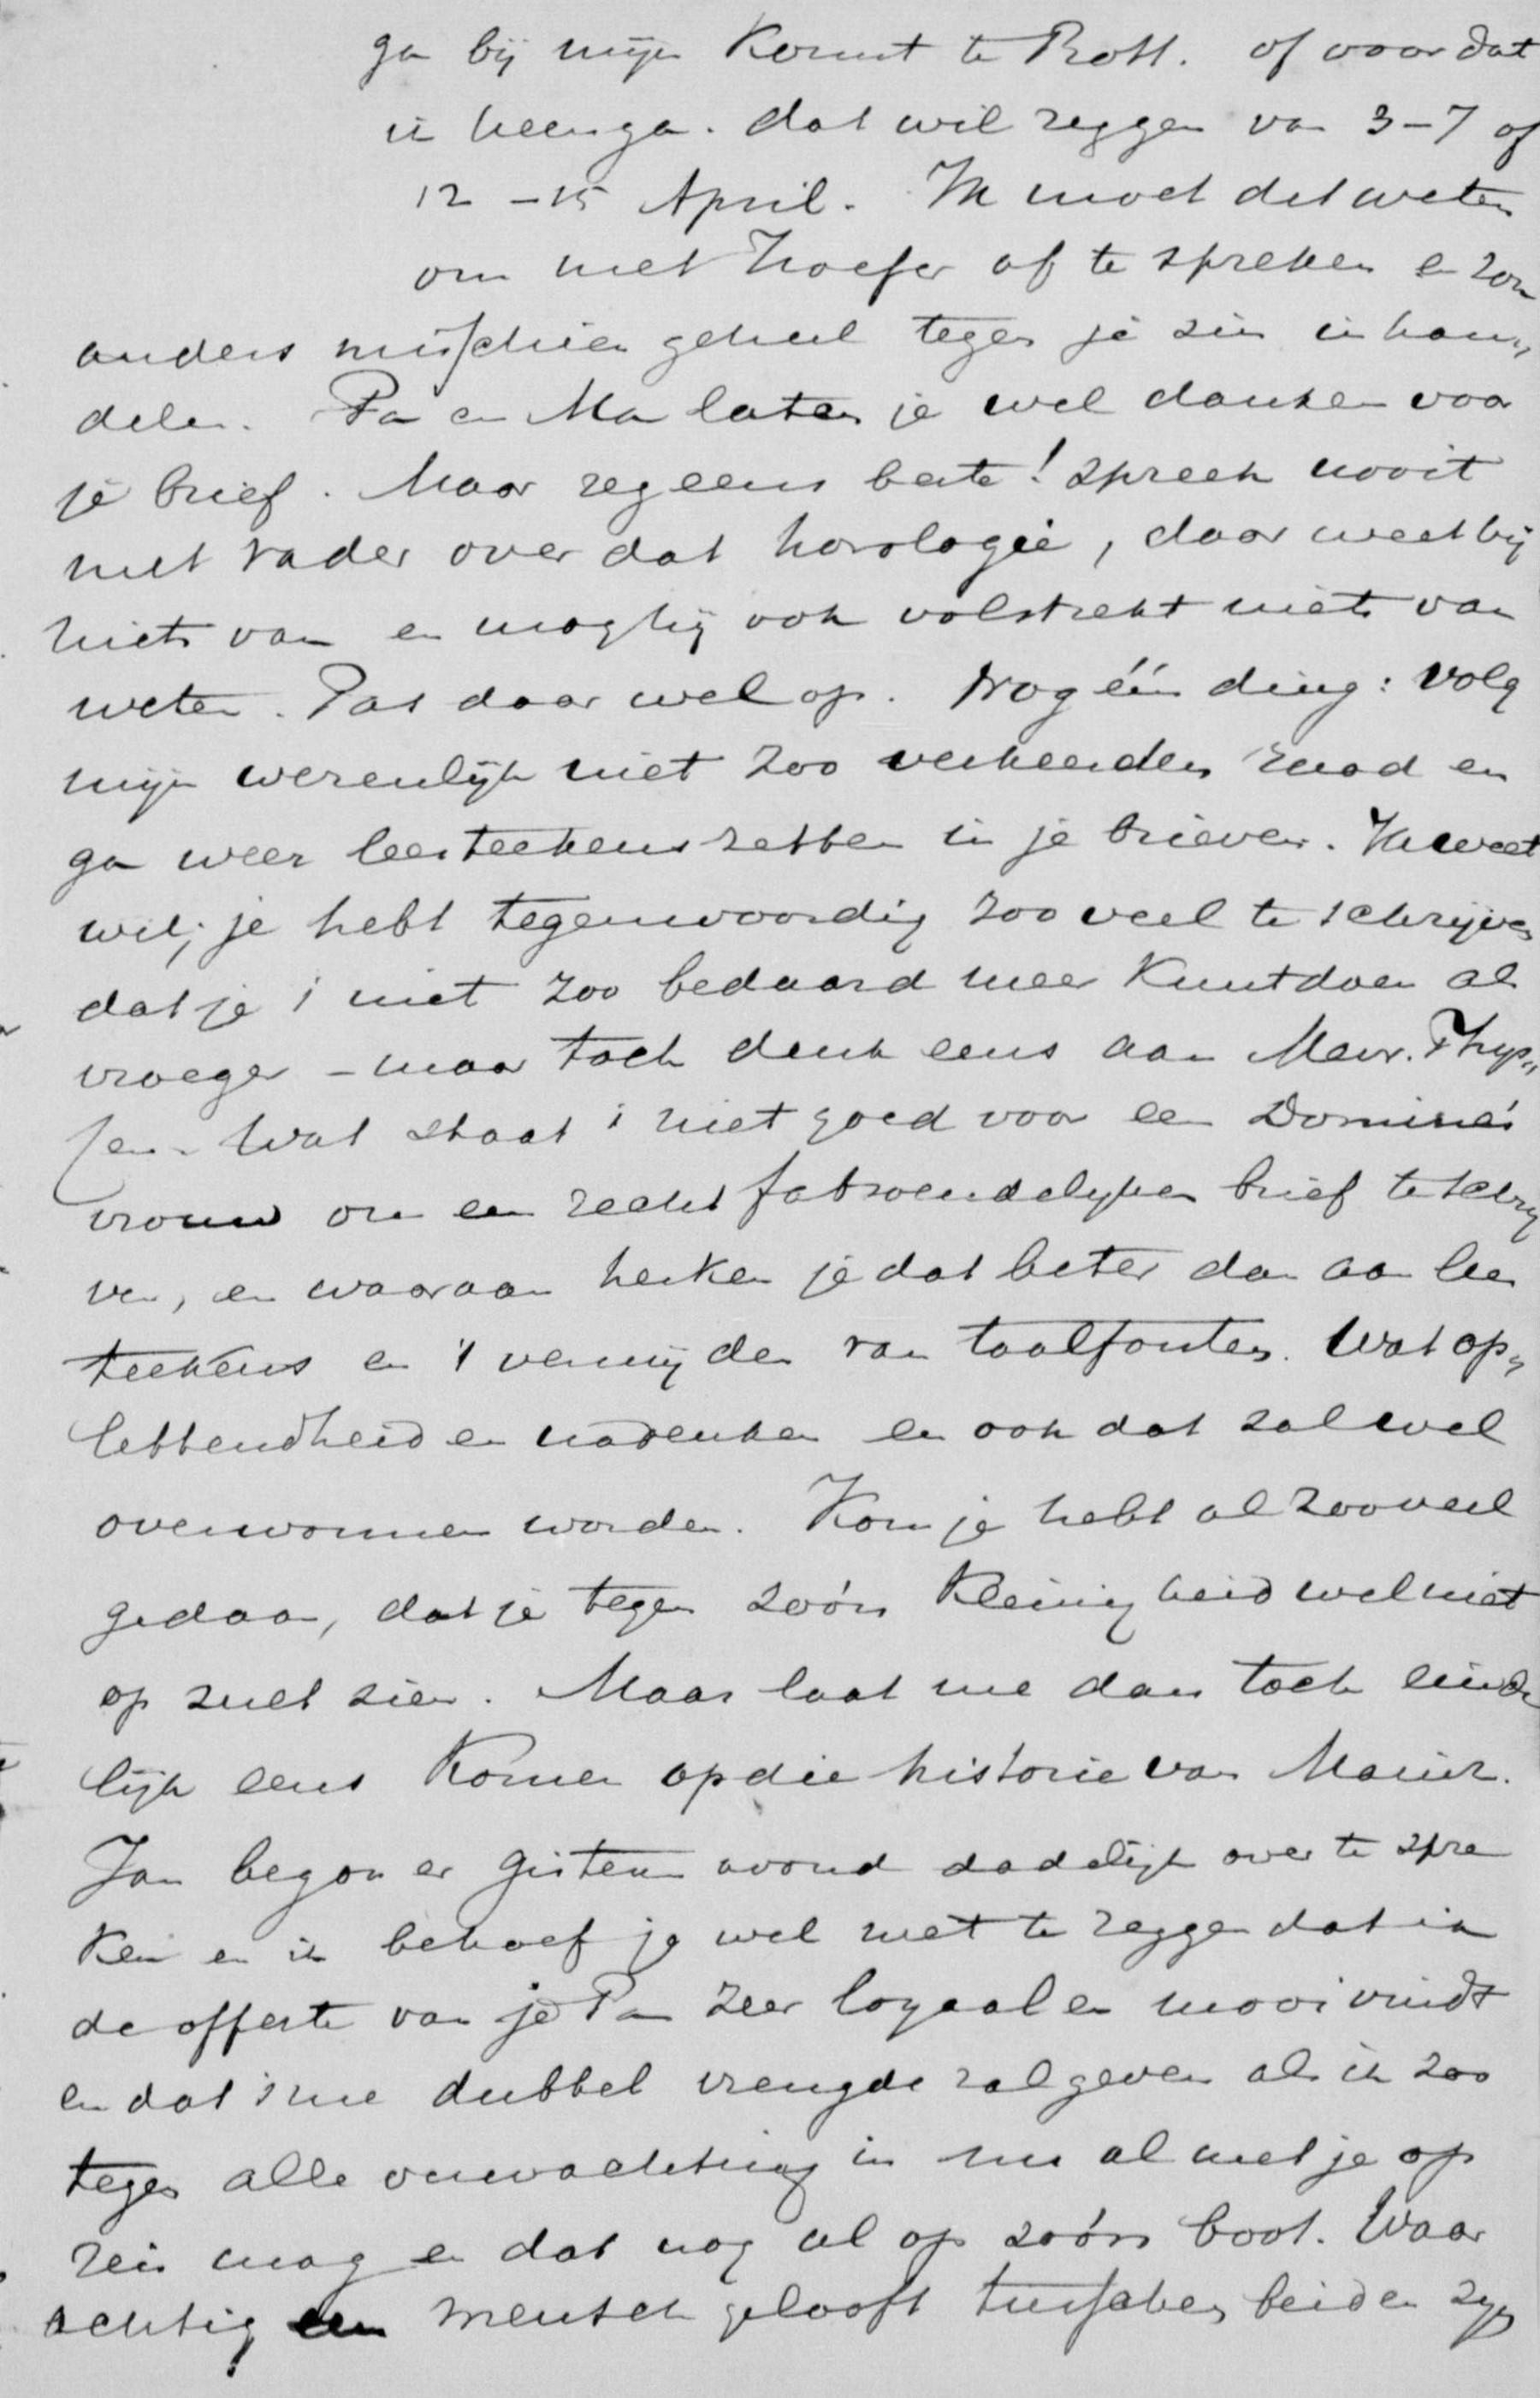 ga bij mijn komst te Rott. of voor dat
ik heenga. dat wil zeggen van 3-7 of
12-15 April. Ik moet dat weten
om met Hoefer af te spreken en zou
anders misschien geheel tegen je zin in han„
delen. Pa en Ma laten je wel danken voor
je brief. Maar zeg eens beste! spreek nooit
met vader over dat horologie, daar weet hij
niets van en mag hij ook volstrekt niets van
weten. Pas daar wel op. Nog één ding: volg
mijn werenlijk niet zoo verkeerden raad en
ga weer leesteekens zetten in je brieven. Ik weet
wel, je hebt tegenwoordig zoo veel te schrijven
dat je 't niet zoo bedaard meer kunt doen als
vroeger - maar toch denk eens aan Mevr. Thys„
sen. Wat staat 't niet goed voor een Dominé's
vrouw om een recht fatsoendelyken brief te schry
ven, en waaraan herken je dat beter dan aan lees
teekens en 't vermijden van taalfouten. Wat op„
lettendheid en nadenken en ook dat zal wel
overwonnen worden. Kom je hebt al zooveel
gedaan, dat je tegen zoó'n kleinigheid wel niet
op zult zien. Maar laat me dan toch einde
lijk eens komen op die historie van
Jan begon er gisteren avond dadelijk over te spre
ken en ik behoef je wel niet te zeggen dat ik
de offerte van je Pa zeer loyaal en mooi vindt
en dat 't me dubbel vreugde zal geven als ik zoo
tegen alle verwachting in nu al met je op
reis mag en dat nog al op zoó'n boot. Waar
achtig een mensch gelooft tusschen beiden zyn